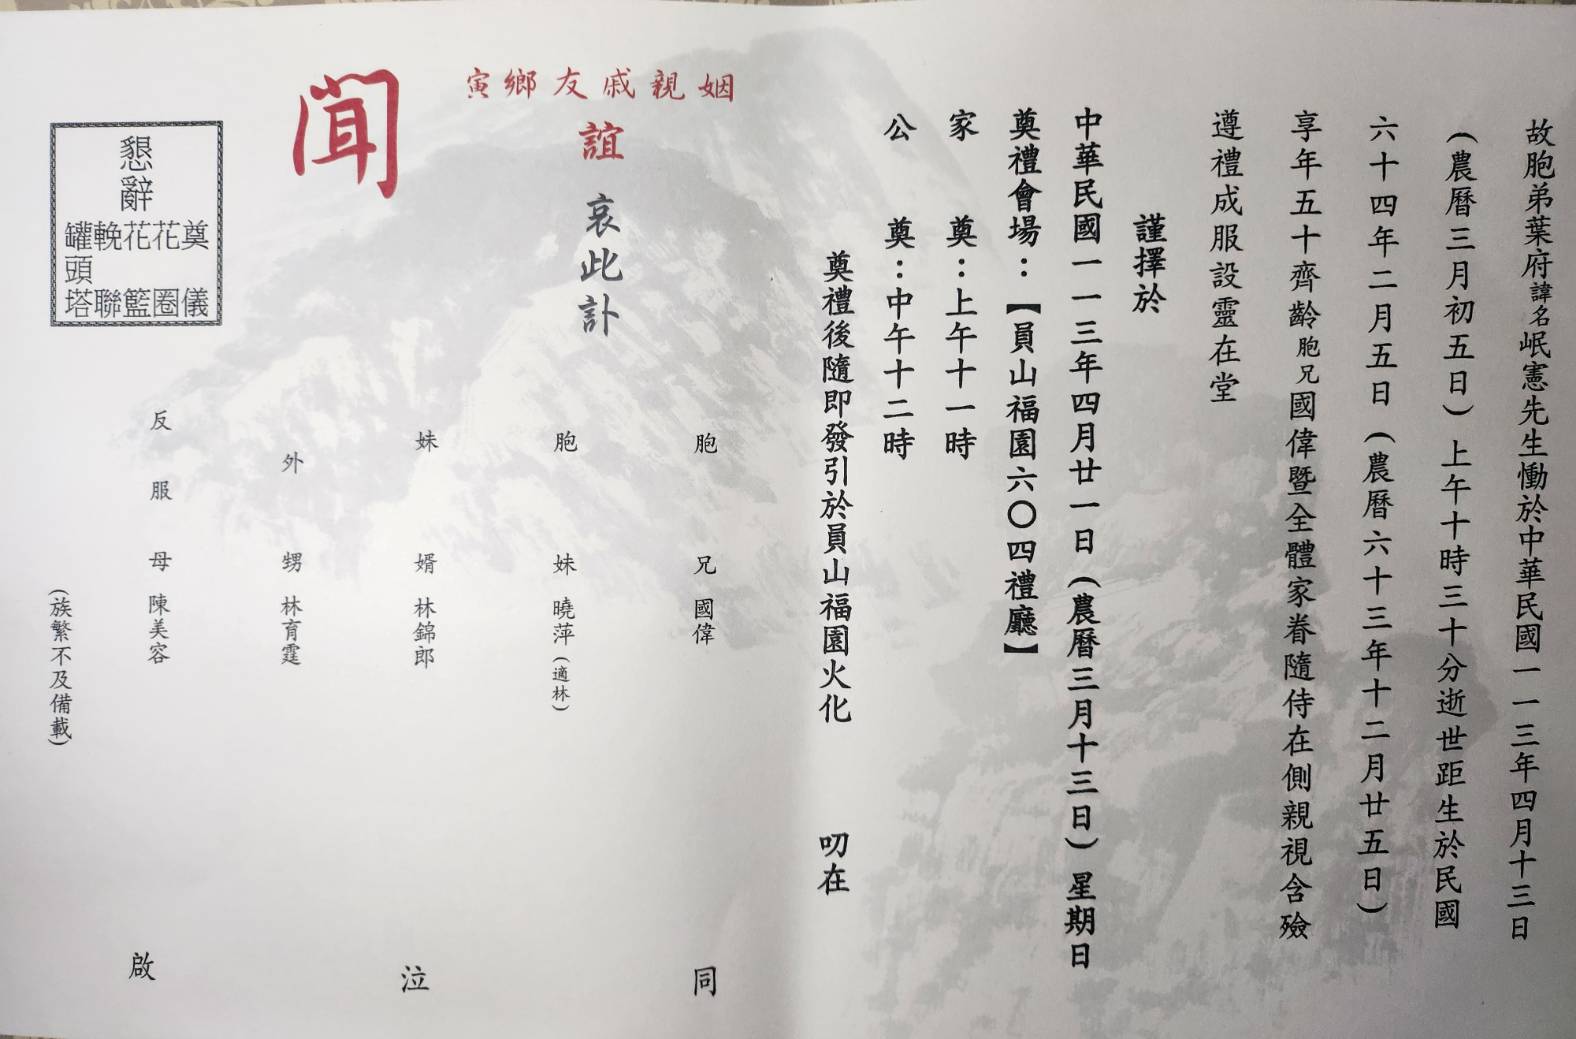 故胞弟葉府諱名岷憲先生慟於中華民國一一三年四月十三日
(農曆三月初五日)上午十時三十分逝世距生於民國
六十四年二月五日(農曆六十三年十二月廿五日)
享年五十齊齡胞兄國偉暨全體家眷隨侍在側親視含殮
遵禮成服設靈在堂
謹擇於
中華民國一一三年四月廿一日(農曆三月十三日)星期日
奠禮會場：【員山福園六〇四禮廳】
家 奠：上午十一時
公 奠：中午十二時
奠禮後隨即發引於員山福園火化 叨在
姻親戚友鄉寅
誼
哀此訃
聞
胞兄 國偉
胞妹 曉萍(適林)
妹婿 林錦郎
外甥 林育霆
反服母 陳美容
(族繁不及備載)
同泣啟
懇辭
奠儀
花圈
花籃
輓聯
罐頭塔